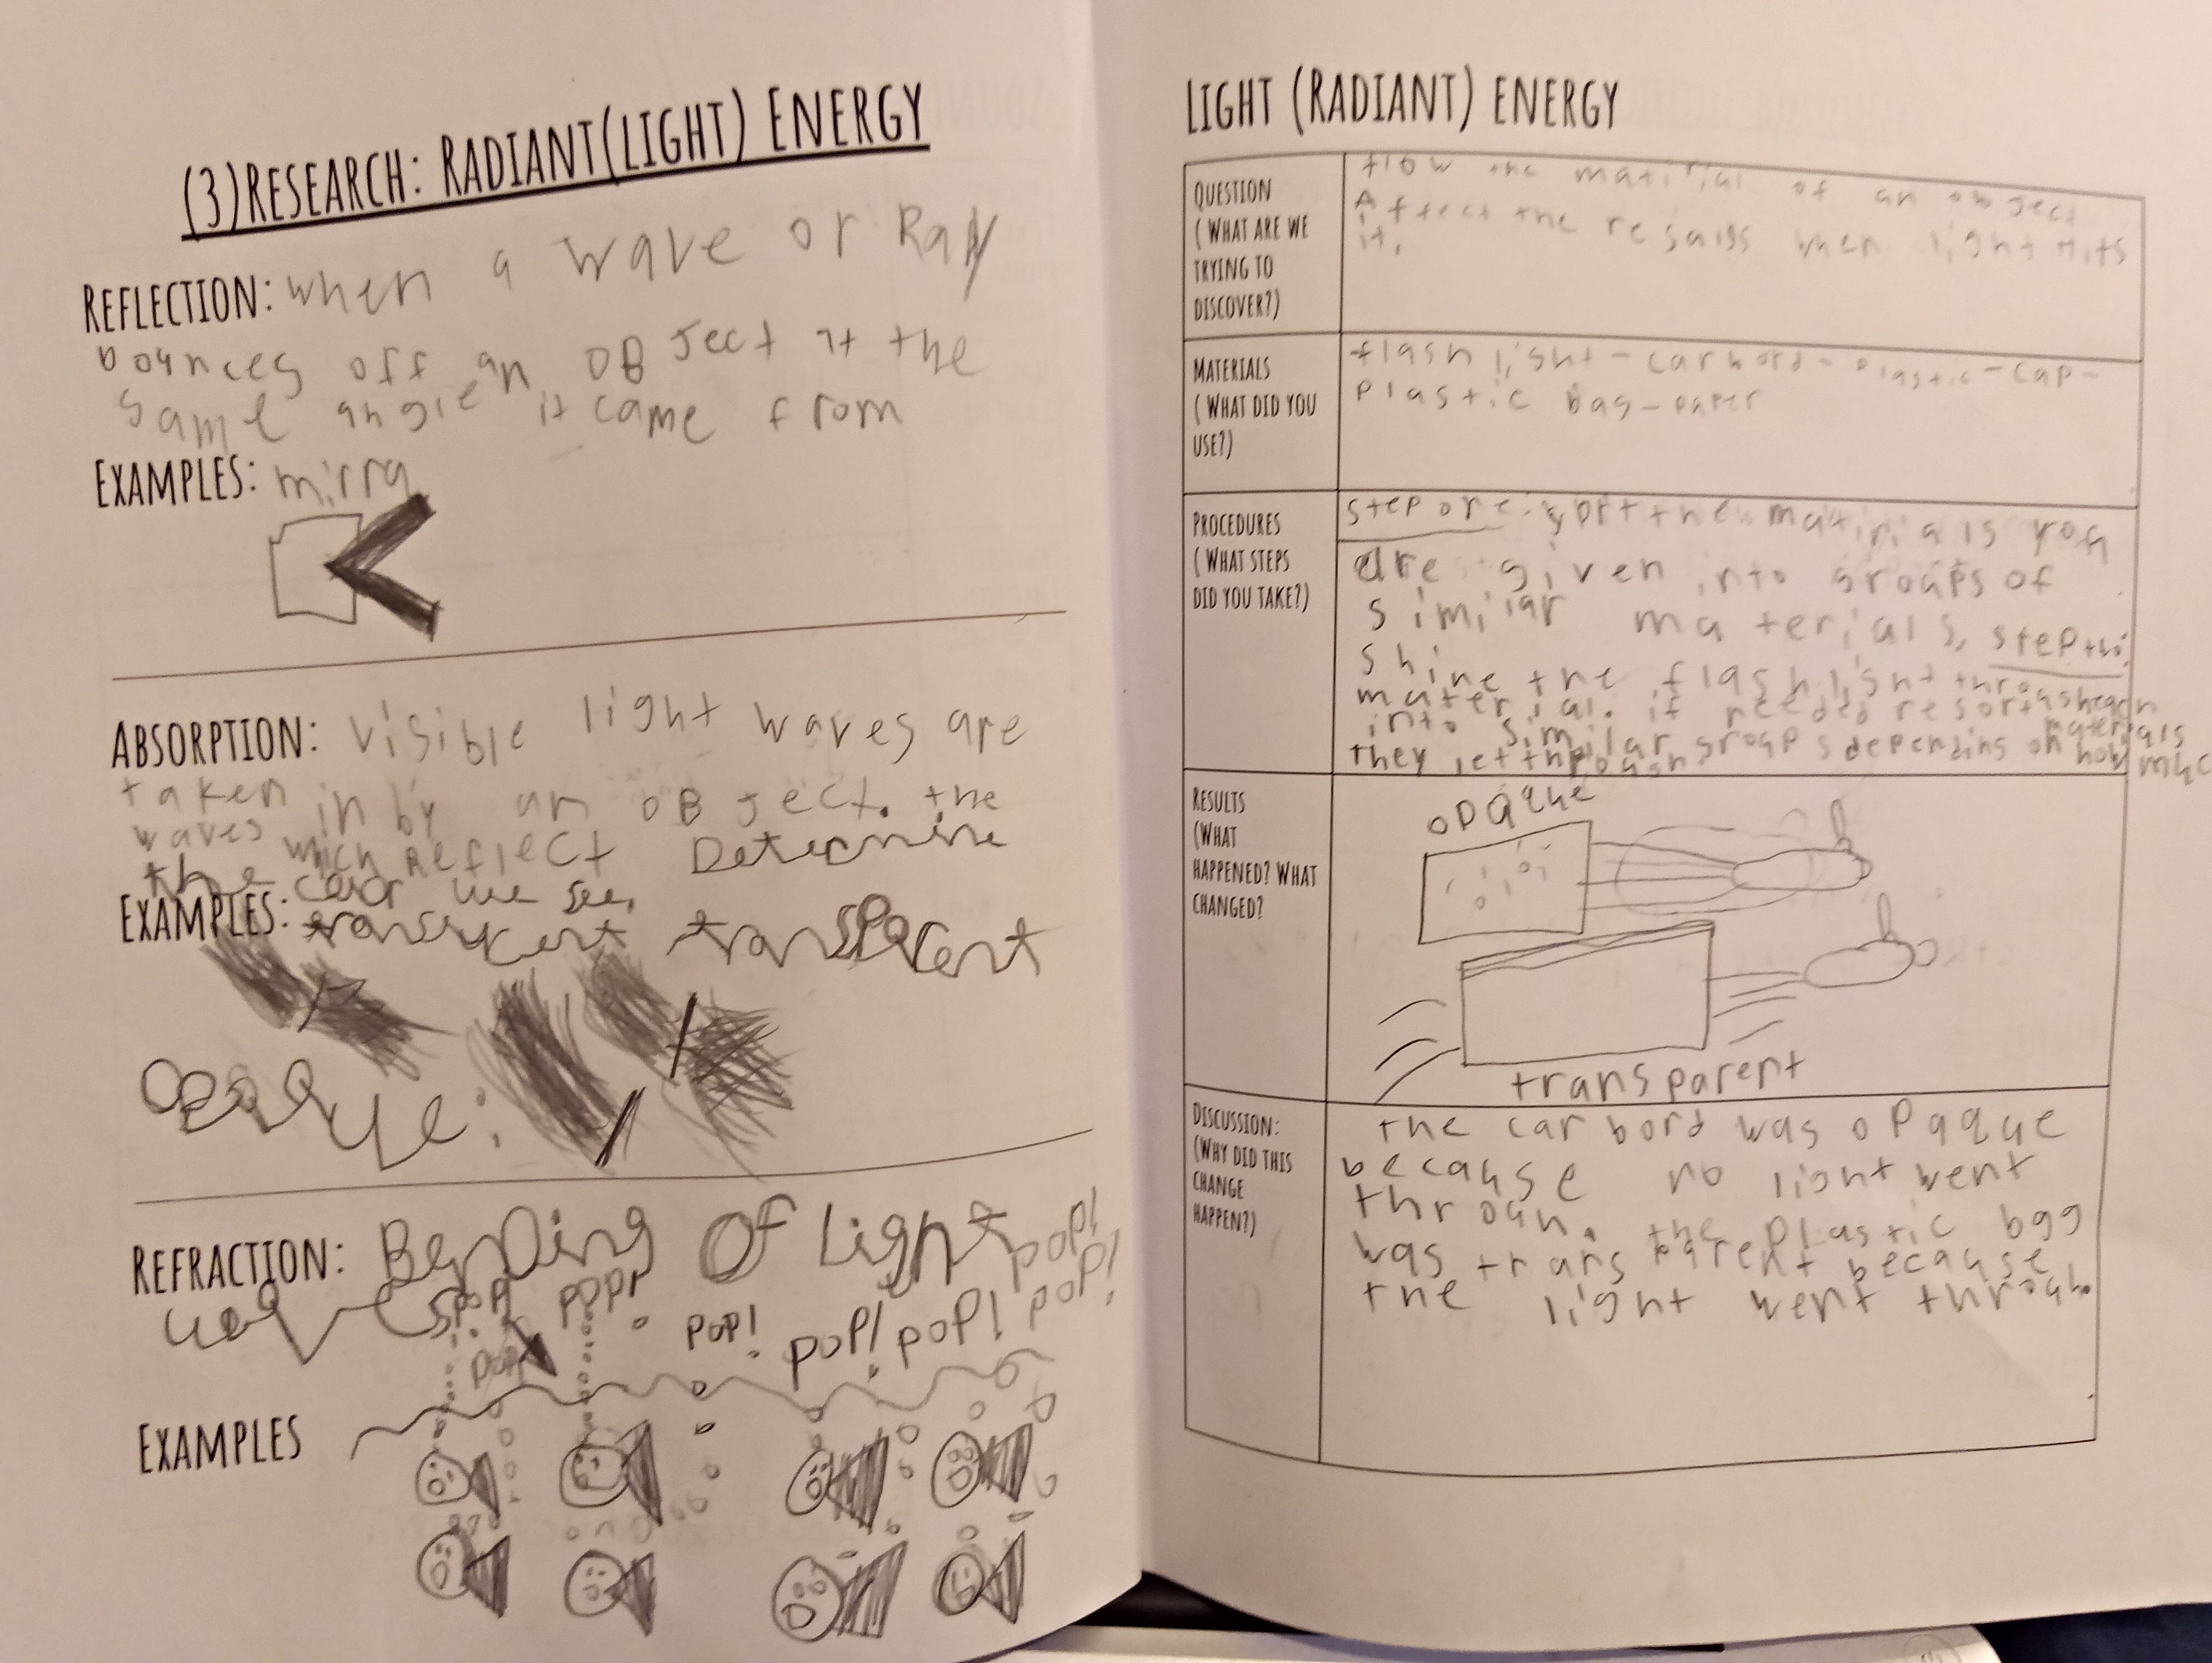 (3)RESEARCH: RADIANT(LIGHT) ENERGY
REFLECTION: when a wave or Ray
bounces off an OBject at the
same angle it came from
EXAMPLES: mirra
ABSORPTION: visible light waves are
taken in by an OBject. the
waves which Reflect Determine
the color we see.
EXAMPLES: transparent
Opaque:
REFRACTION: BenDing Of Light
waves pop! pop! pop!
pop! pop! pop! pop!
pop!
EXAMPLES
LIGHT (RADIANT) ENERGY
QUESTION
(WHAT ARE WE
TRYING TO
DISCOVER?)
How the matirial of an object
Affect the when light Hits
it.
MATERIALS
(WHAT DID YOU
USE?)
flash light - carbord - plastic - cap -
plastic bag - paper
PROCEDURES
(WHAT STEPS
DID YOU TAKE?)
step one: sort the matirials you
are given into groups of
similar materials. step two:
shine the flashlight through each
material. if needed resort materials
into similar groups depending on how much
they let through
RESULTS
(WHAT
HAPPENED? WHAT
CHANGED?
opaque
transparent
DISCUSSION:
(WHY DID THIS
CHANGE
HAPPEN?)
the carbord was opaque
because no light went
throuh. the plastic bag
was transparent because
the light went throuh.